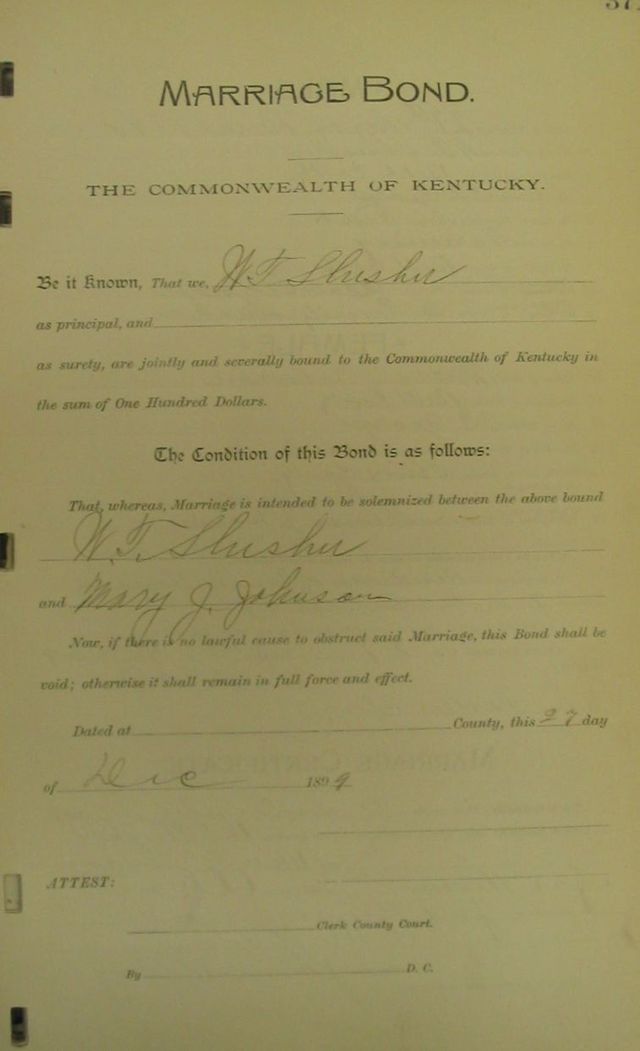 37
MARRIAGE BOND.
THE COMMONWEALTH OF KENTUCKY.
Be it Known, That we, W. T. Slusher
as principal, and
as surety, are jointly and severally bound to the Commonwealth of Kentucky in
the sum of One Hundred Dollars.
The Condition of this Bond is as follows:
That, whereas, Marriage is intended to be solemnized between the above bound
W. T. Slusher
and Mary J. Johnson
Now, if there is no lawful cause to obstruct said Marriage, this Bond shall be
void; otherwise it shall remain in full force and effect.
Dated at County, this 27 day
of Dec 1899
ATTEST:
Clerk County Court.
By D. C.